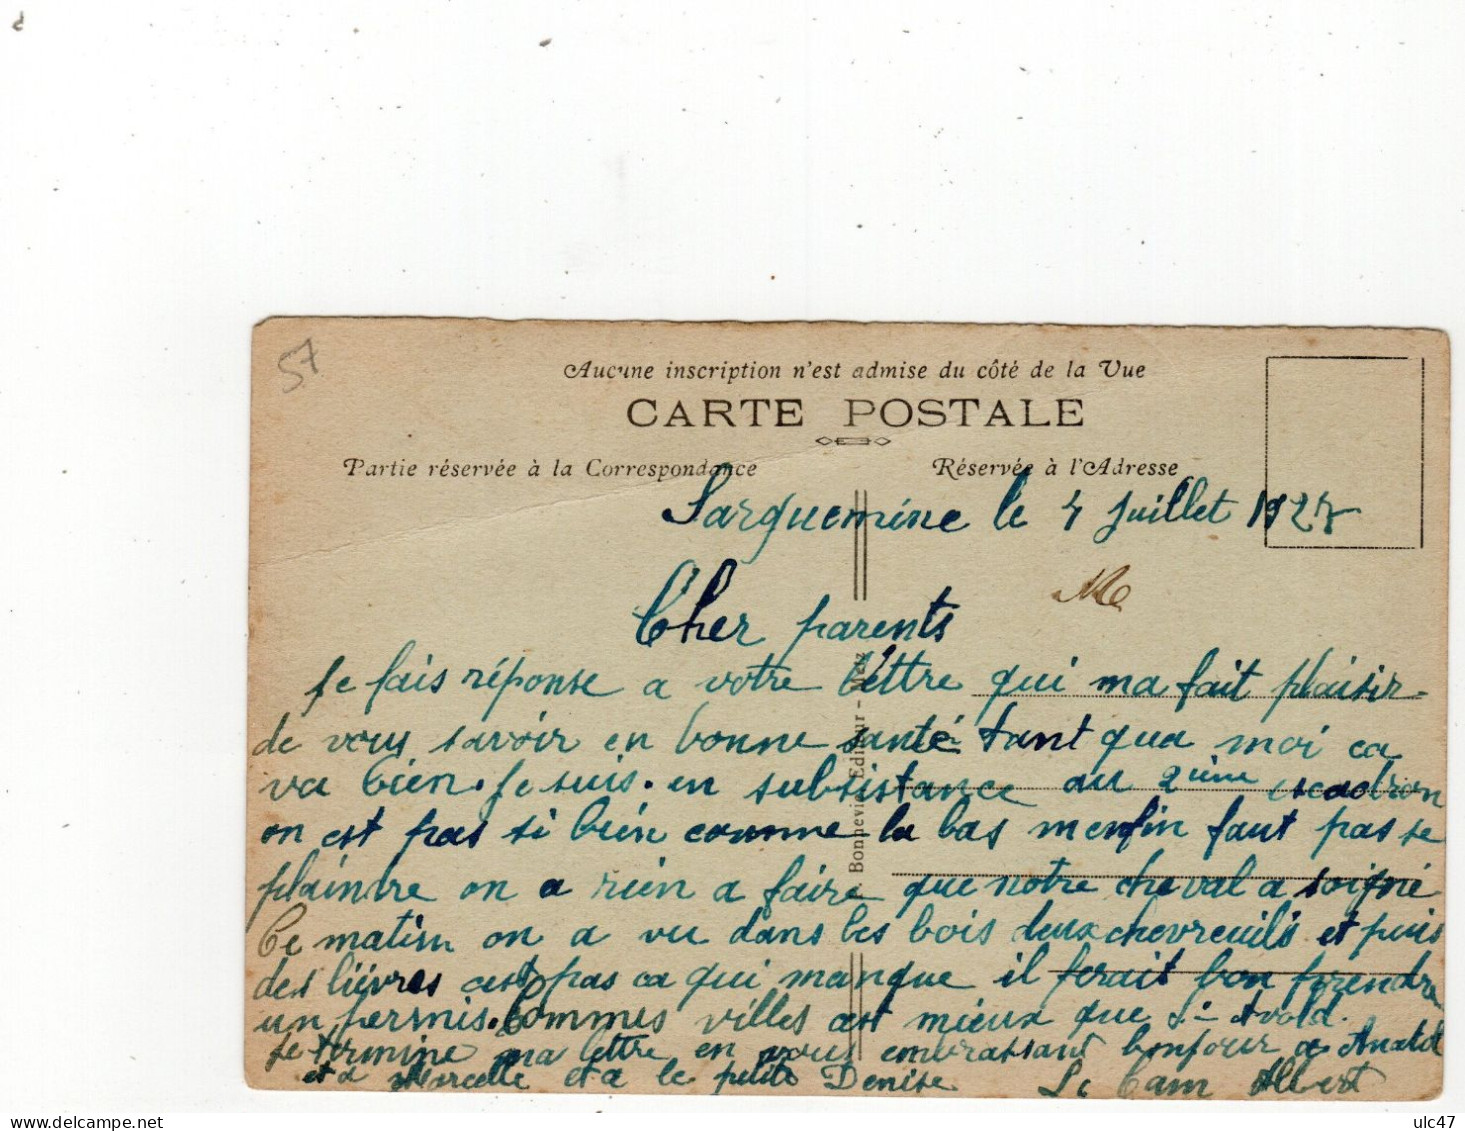 57
Aucune inscription n'est admise du côté de la Vue
CARTE POSTALE
Partie réservée à la Correspondance
Réservée à l'Adresse
Sarguemine le 4 Juillet 1927
Cher parents
Je fais réponse a votre lettre qui ma fait plaisir
de vous savoir en bonne santé tant qua moi ca
va bien. Je suis en subsistance au 2ième escadron
on est pas si bien comme la bas menfin faut pas se
plaindre on a rien a faire que notre cheval a soigné
Ce matin on a vu dans les bois deux chevreuils et puis
des lièvres cest pas ca qui manque il ferait bon prendre
un permis. Commes villes cest mieux que St Avold.
Je termine ma lettre en vous embrassant bonjour a Anatol
et a Marcelle et a le petite Denise Albert
Bonnevie Editeur - Metz
delcampe.net
ulc47